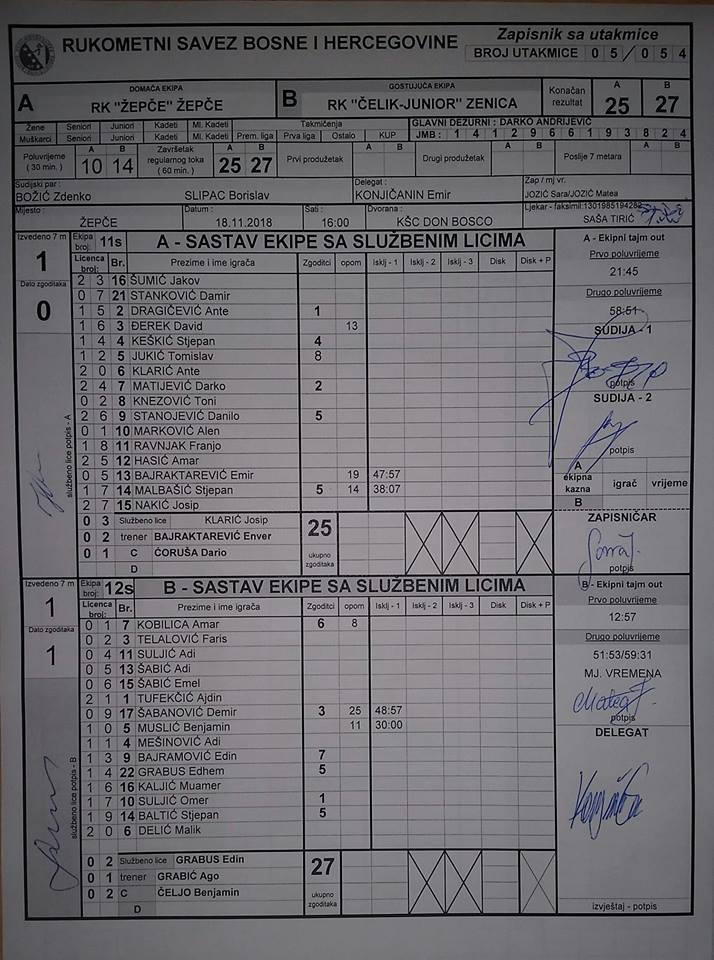 RUKOMETNI SAVEZ BOSNE I HERCEGOVINE
Zapisnik sa utakmice
BROJ UTAKMICE 0 5 / 0 5 4
A
DOMAĆA EKIPA
RK "ŽEPČE" ŽEPČE
B
GOSTUJUĆA EKIPA
RK "ČELIK-JUNIOR" ZENICA
Konačan rezultat
A B
25 27
Žene Seniori Juniori Kadeti Ml. Kadeti Takmičenja GLAVNI DEŽURNI : DARKO ANDRIJEVIĆ
Muškarci Seniori Juniori Kadeti Ml. Kadeti Prem. liga Prva liga Ostalo KUP JMB : 1 4 1 2 9 6 6 1 9 3 8 2 4
Poluvrijeme ( 30 min. ) A 10 B 14 Završetak regularnog toka ( 60 min. ) A 25 B 27 Prvi produžetak A B Drugi produžetak A B Poslije 7 metara A B
Sudijski par : Delegat : Zap / mj vr.
BOŽIĆ Zdenko SLIPAC Borislav KONJIČANIN Emir JOZIĆ Sara/JOZIĆ Matea
Mjesto : Datum : Sati : Dvorana : Ljekar - faksimil:1301985194282
ŽEPČE 18.11.2018 16:00 KŠC DON BOSCO SAŠA TIRIĆ
Izvedeno 7 m
1
Dato zgoditaka
0
službeno lice potpis - A
Ekipa broj: 11s A - SASTAV EKIPE SA SLUŽBENIM LICIMA
Licenca broj: Br. Prezime i ime igrača Zgoditci opom Isklj - 1 Isklj - 2 Isklj - 3 Disk Disk + P
2 3 16 ŠUMIĆ Jakov
0 7 21 STANKOVIĆ Damir
1 5 2 DRAGIČEVIĆ Ante 1
1 6 3 ĐEREK David 13
1 4 4 KEŠKIĆ Stjepan 4
1 2 5 JUKIĆ Tomislav 8
2 0 6 KLARIĆ Ante
2 4 7 MATIJEVIĆ Darko 2
0 2 8 KNEZOVIĆ Toni
2 6 9 STANOJEVIĆ Danilo 5
0 1 10 MARKOVIĆ Alen
1 8 11 RAVNJAK Franjo
2 5 12 HASIĆ Amar
0 5 13 BAJRAKTAREVIĆ Emir 19 47:57
1 7 14 MALBAŠIĆ Stjepan 5 14 38:07
2 7 15 NAKIĆ Josip
0 3 Službeno lice KLARIĆ Josip 25
0 2 trener BAJRAKTAREVIĆ Enver
0 1 C ĆORUŠA Dario ukupno zgoditaka
D
A - Ekipni tajm out
Prvo poluvrijeme
21:45
Drugo poluvrijeme
58:51
SUDIJA - 1
potpis
SUDIJA - 2
potpis
A
ekipna kazna igrač vrijeme
B
ZAPISNIČAR
potpis
Izvedeno 7 m
1
Dato zgoditaka
1
službeno lice potpis - B
Ekipa broj: 12s B - SASTAV EKIPE SA SLUŽBENIM LICIMA
Licenca broj: Br. Prezime i ime igrača Zgoditci opom Isklj - 1 Isklj - 2 Isklj - 3 Disk Disk + P
0 1 7 KOBILICA Amar 6 8
0 2 3 TELALOVIĆ Faris
0 4 11 SULJIĆ Adi
0 5 13 ŠABIĆ Adi
0 6 15 ŠABIĆ Emel
2 1 1 TUFEKČIĆ Ajdin
0 9 17 ŠABANOVIĆ Demir 3 25 48:57
1 0 5 MUSLIĆ Benjamin 11 30:00
1 1 4 MEŠINOVIĆ Adi
1 3 9 BAJRAMOVIĆ Edin 7
1 4 22 GRABUS Edhem 5
1 6 16 KALJIĆ Muamer
1 7 10 SULJIĆ Omer 1
1 9 14 BALTIĆ Stjepan 5
2 0 6 DELIĆ Malik
0 2 Službeno lice GRABUS Edin 27
0 1 trener GRABIĆ Ago
0 2 C ČELJO Benjamin ukupno zgoditaka
D
B - Ekipni tajm out
Prvo poluvrijeme
12:57
Drugo poluvrijeme
51:53/59:31
MJ. VREMENA
potpis
DELEGAT
izvještaj - potpis